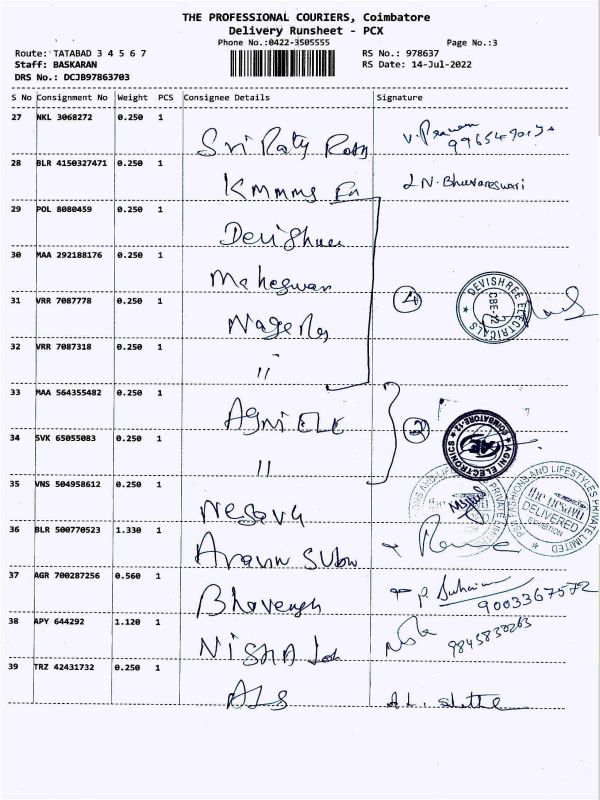 THE PROFESSIONAL COURIERS, Coimbatore
Delivery Runsheet - PCX
Phone No.:0422-3505555
Page No.:3
Route: TATABAD 3 4 5 6 7
RS No.: 978637
Staff: BASKARAN
RS Date: 14-Jul-2022
DRS No.: DCJB97863703
S No Consignment No Weight PCS Consignee Details Signature
27 NKL 3068272 0.250 1
Sri Raty
28 BLR 4150327471 0.250 1
Kmmms L N. Bhuvaneswari
29 POL 8080459 0.250 1
Devi Shree
30 MAA 292188176 0.250 1
Maheswari
31 VRR 7087778 0.250 1
4
DEVISHREE ELECTRICALS
CBE-12
32 VRR 7087318 0.250 1
"
33 MAA 564355482 0.250 1
Agni ELE
2
AGNI ELECTRONICS
COIMBATORE-12
34 SVK 65055083 0.250 1
"
35 VNS 504958612 0.250 1
Nesavu
FASHIONS AND LIFESTYLES PRIVATE LIMITED
the nesavu
DELIVERED
36 BLR 500770523 1.330 1
Aravin Subu
37 AGR 700287256 0.560 1
9003367572
38 APY 644292 1.120 1
NISHA
9845830263
39 TRZ 42431732 0.250 1
ALS